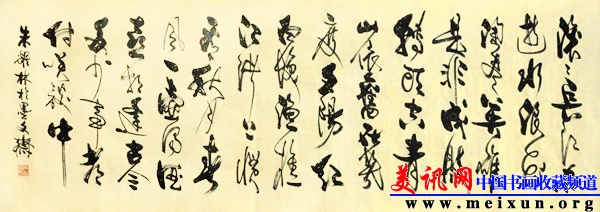 滚滚长江东
逝水浪花
淘尽英雄
是非成败
转头空青
山依旧在几
度夕阳红
白发渔樵
江渚上惯
看秋月春
风一壶浊酒
喜相逢古今
多少事都
付笑谈中
朱耀林於墨文斋
美讯网 中国书画收藏频道
www.meixun.org